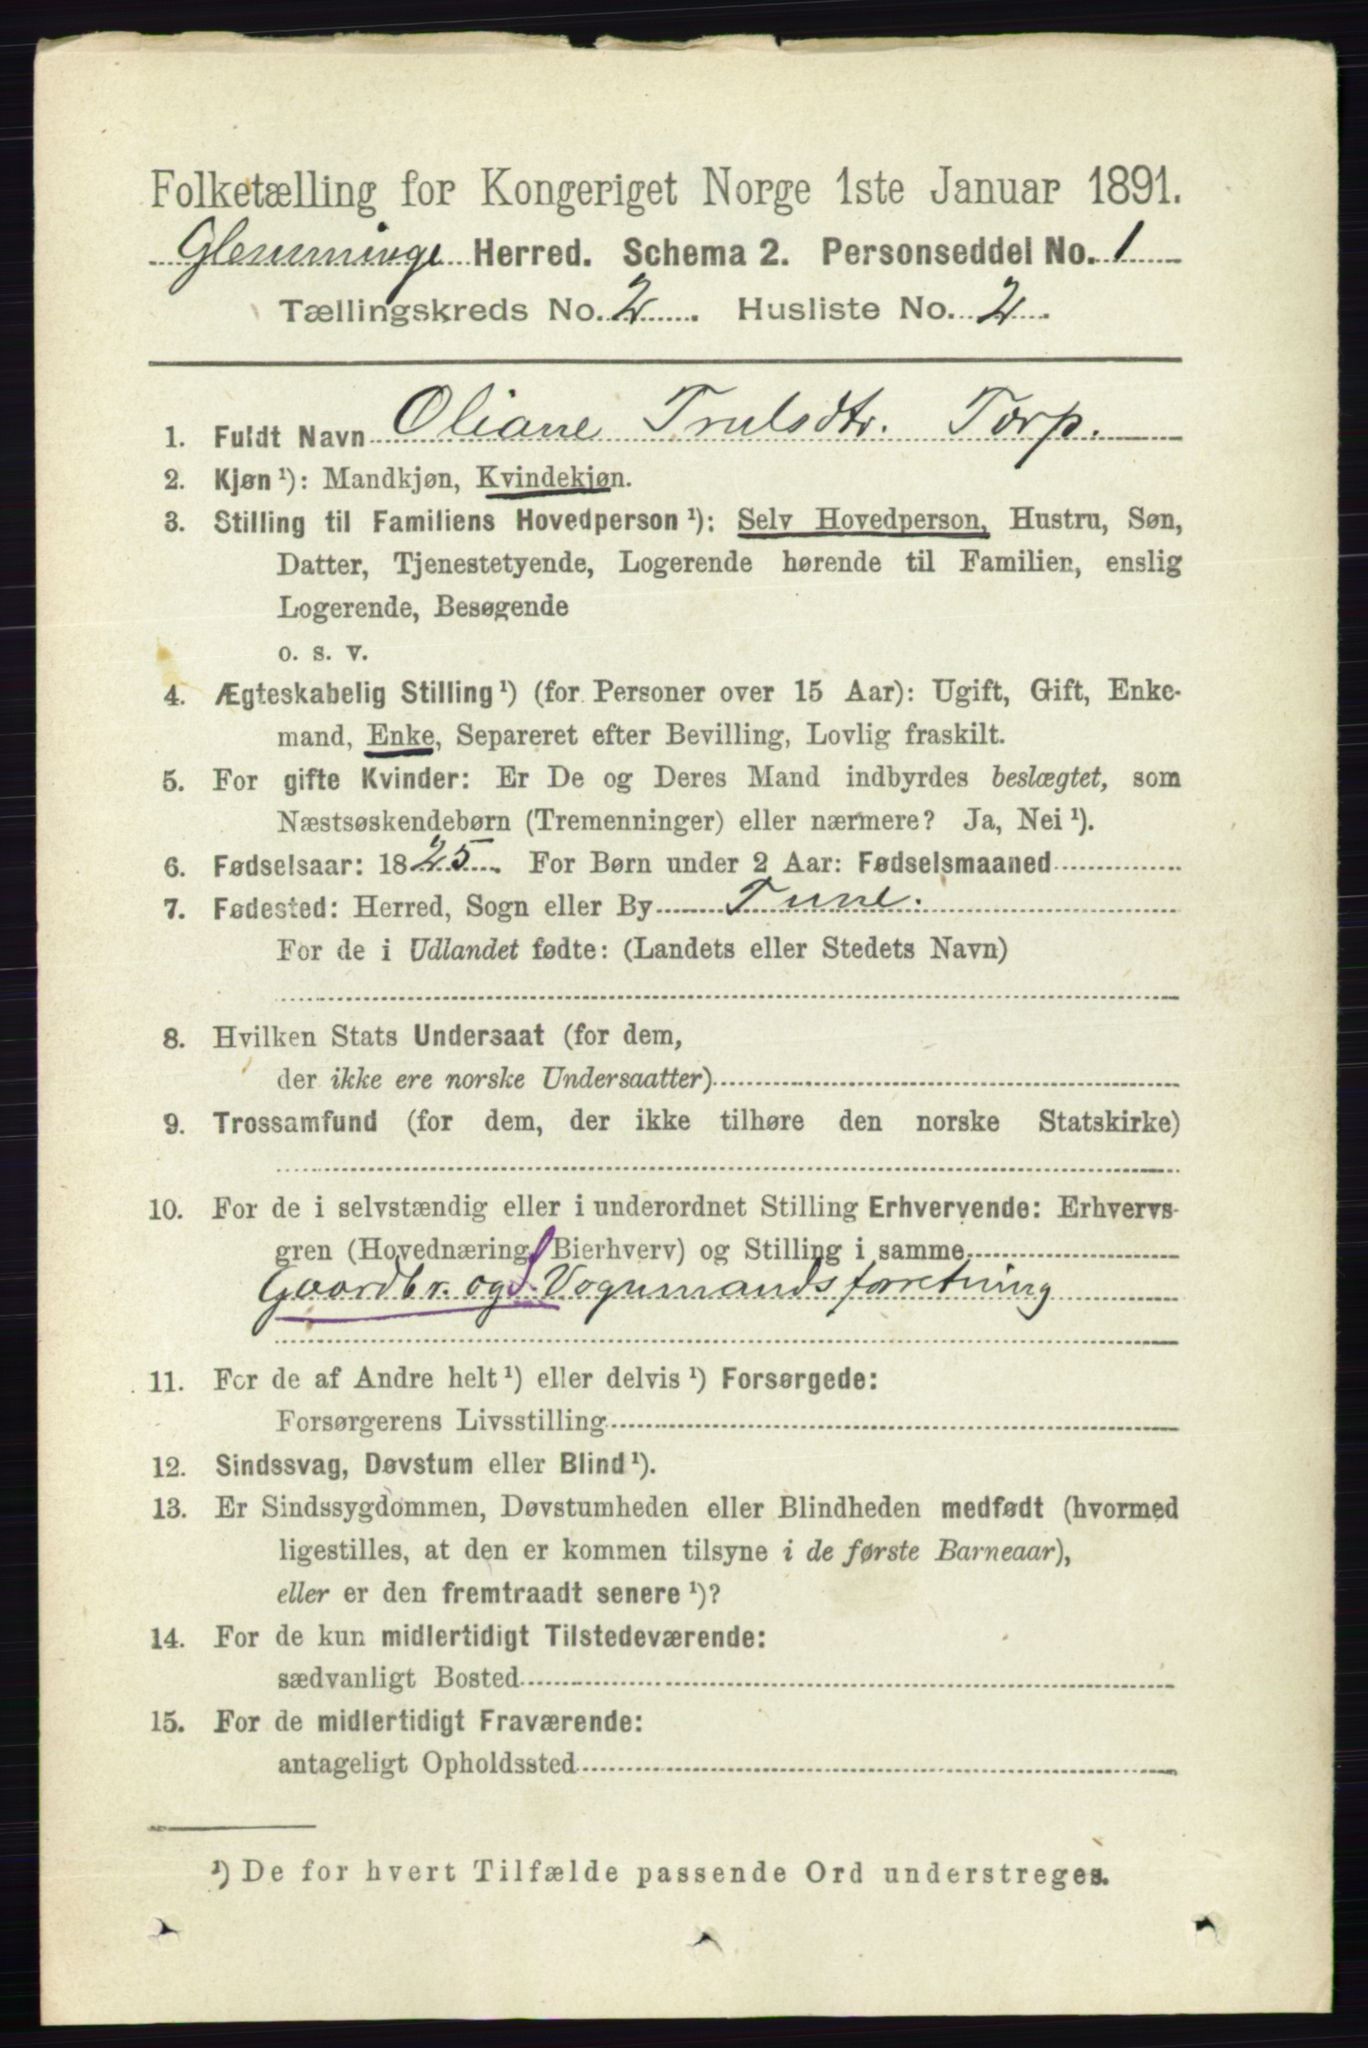 Folketælling for Kongeriget Norge 1ste Januar 1891.
Glemminge Herred. Schema 2. Personseddel No. 1
Tællingskreds No. 2. Husliste No. 2.
1. Fuldt Navn Oliane Trulsdtr. Torp.
2. Kjøn ¹): Mandkjøn, Kvindekjøn.
3. Stilling til Familiens Hovedperson ¹): Selv Hovedperson, Hustru, Søn,
Datter, Tjenestetyende, Logerende hørende til Familien, enslig
Logerende, Besøgende
o. s. v.
4. Ægteskabelig Stilling ¹) (for Personer over 15 Aar): Ugift, Gift, Enke-
mand, Enke, Separeret efter Bevilling, Lovlig fraskilt.
5. For gifte Kvinder: Er De og Deres Mand indbyrdes beslægtet, som
Næstsøskendebørn (Tremenninger) eller nærmere? Ja, Nei ¹).
6. Fødselsaar: 1825. For Børn under 2 Aar: Fødselsmaaned
7. Fødested: Herred, Sogn eller By Tune.
For de i Udlandet fødte: (Landets eller Stedets Navn)
8. Hvilken Stats Undersaat (for dem,
der ikke ere norske Undersaatter)
9. Trossamfund (for dem, der ikke tilhøre den norske Statskirke)
10. For de i selvstændig eller i underordnet Stilling Erhvervende: Erhvervs-
gren (Hovednæring, Bierhverv) og Stilling i samme
Gaardbr. og S. Vognmandsforretning
11. For de af Andre helt ¹) eller delvis ¹) Forsørgede:
Forsørgerens Livsstilling
12. Sindssvag, Døvstum eller Blind ¹).
13. Er Sindssygdommen, Døvstumheden eller Blindheden medfødt (hvormed
ligestilles, at den er kommen tilsyne i de første Barneaar),
eller er den fremtraadt senere ¹)?
14. For de kun midlertidigt Tilstedeværende:
sædvanligt Bosted
15. For de midlertidigt Fraværende:
antageligt Opholdssted
¹) De for hvert Tilfælde passende Ord understreges.